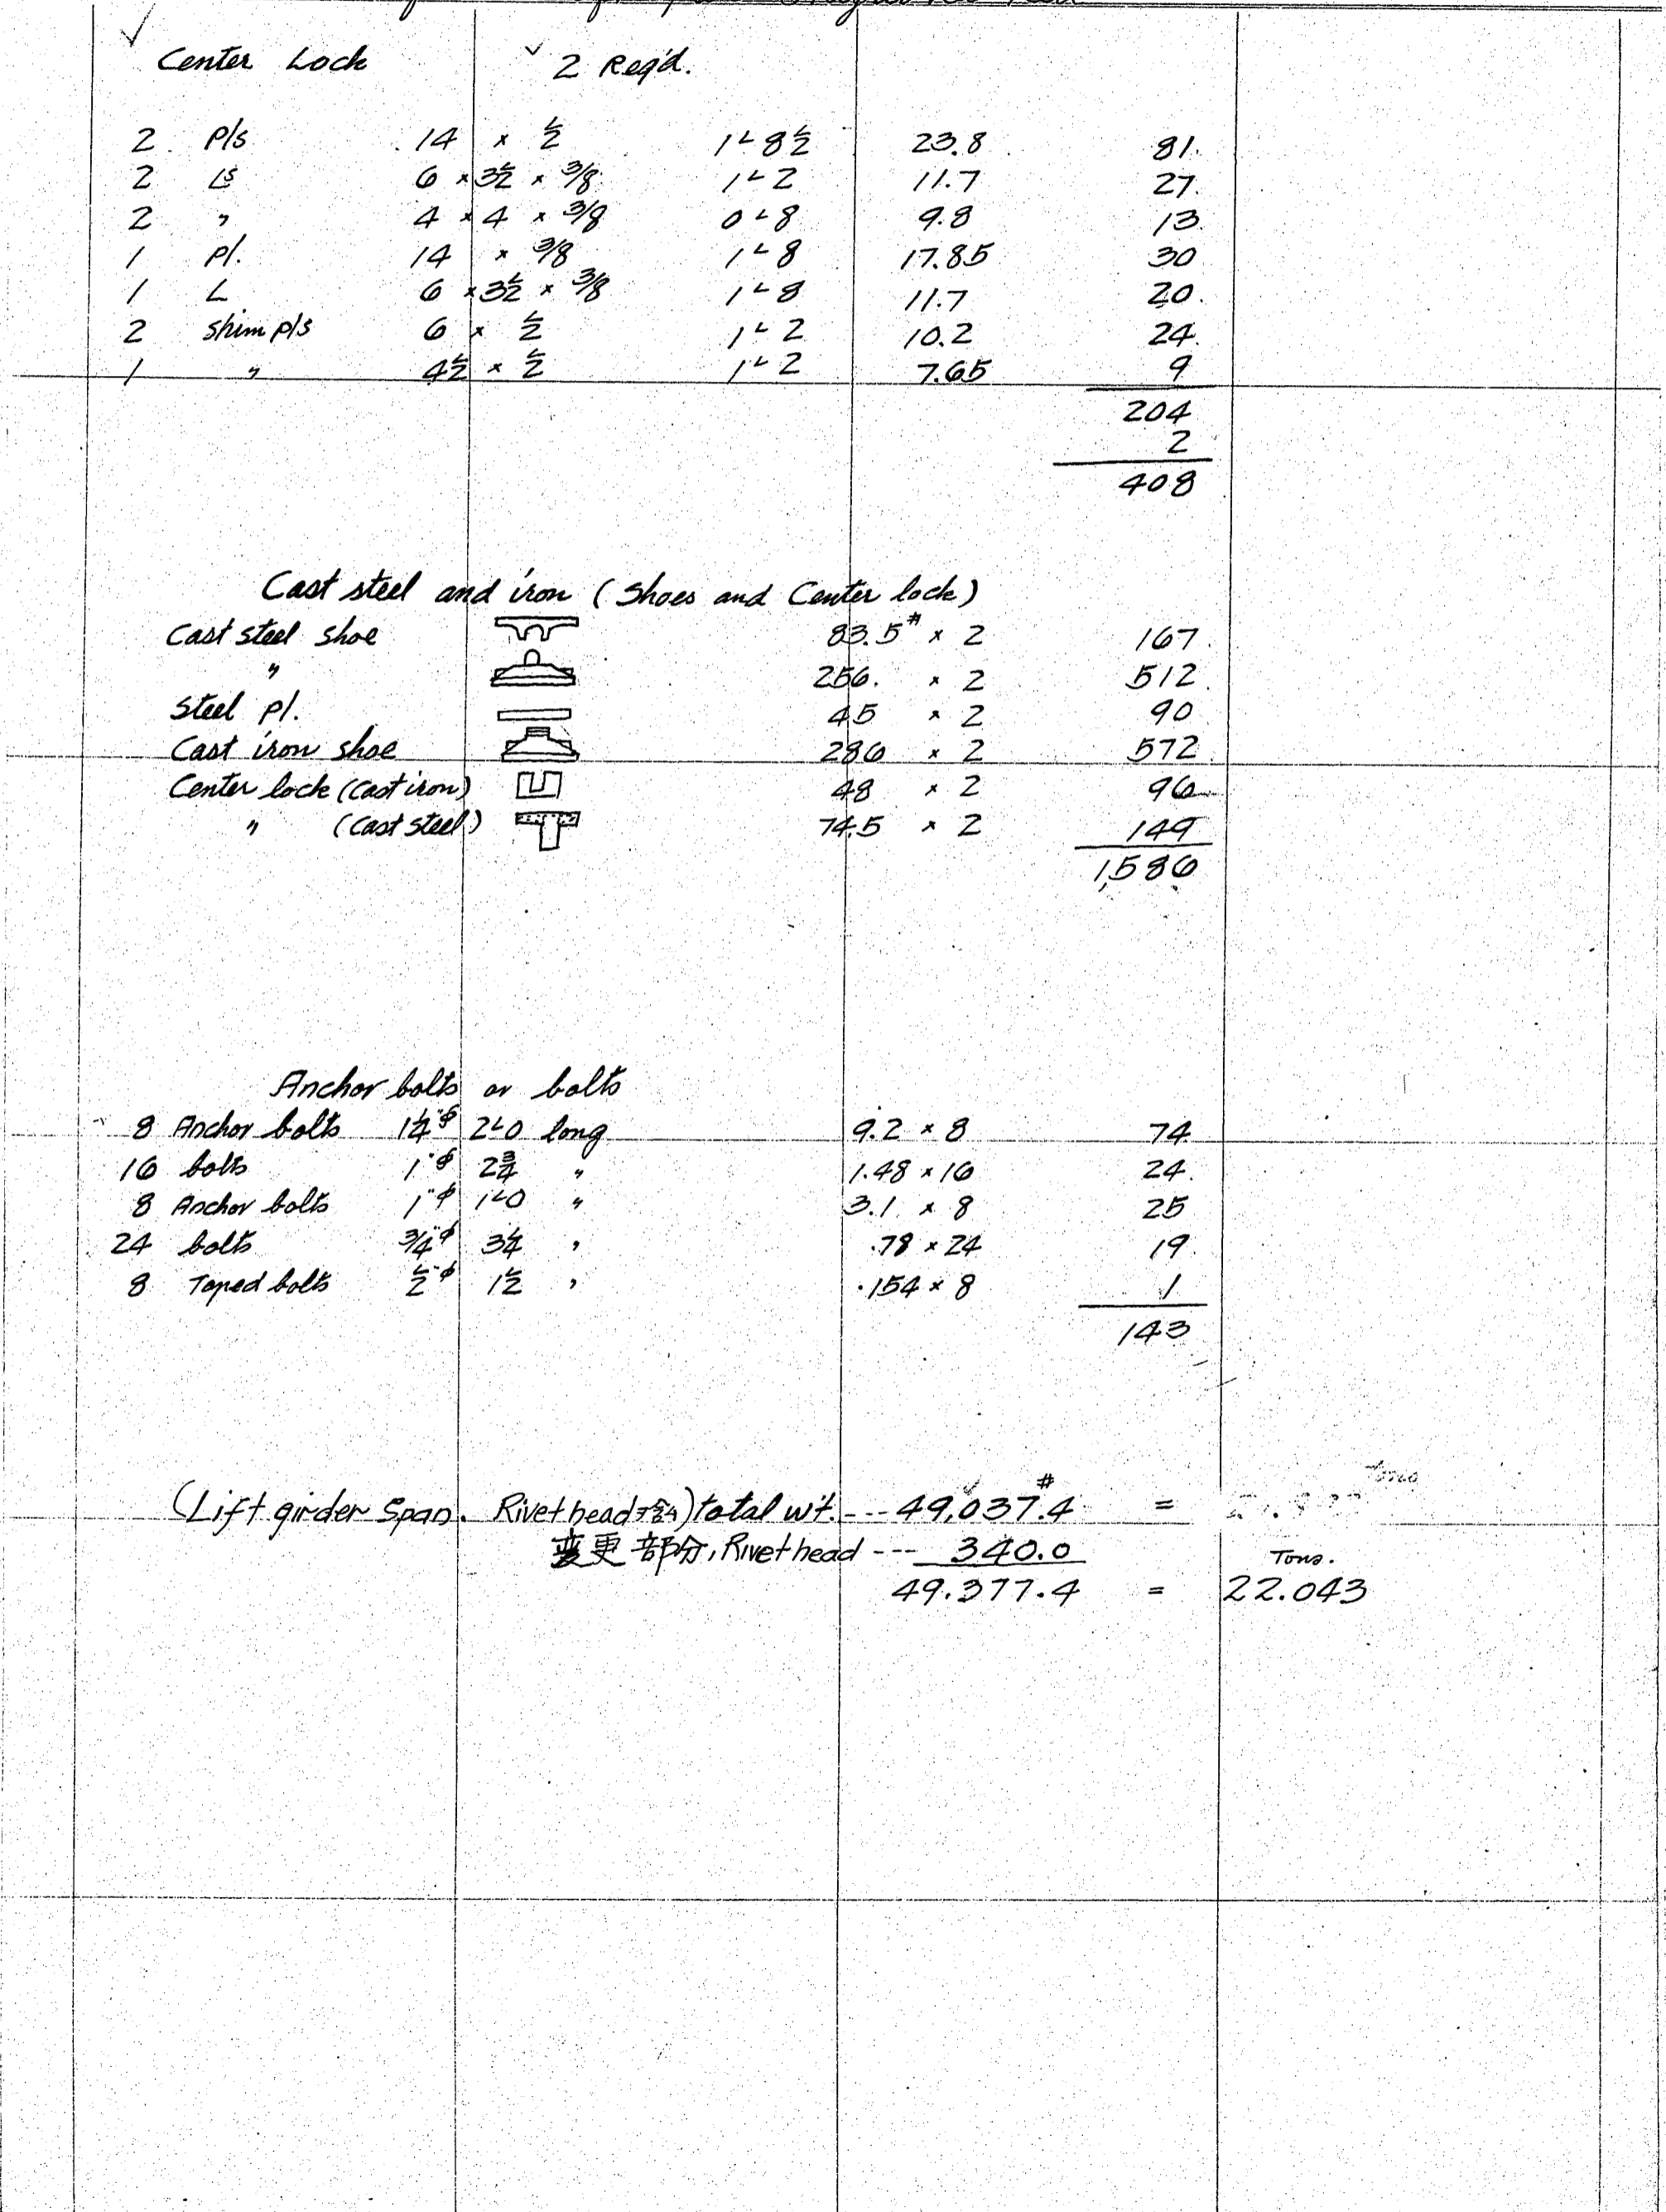 Center Lock 2 Req'd.
2 Pls 14 x ½ 1'-8½ 23.8 81.
2 Ls 6 x 3½ x 3/8 1'-2 11.7 27.
2 " 4 x 4 x 3/8 0'-8 9.8 13
1 Pl. 14 x 3/8 1'-8 17.85 30
1 L 6 x 3½ x 3/8 1'-8 11.7 20.
2 shim pls 6 x ½ 1'-2 10.2 24.
1 " 4½ x ½ 1'-2 7.65 9
204
2
408
Cast steel and iron (Shoes and Center lock)
Cast steel shoe 83.5# x 2 167.
" 256. x 2 512.
Steel pl. 45 x 2 90
Cast iron shoe 286 x 2 572.
Center lock (Cast iron) 48 x 2 96
" (Cast steel) 74.5 x 2 149
1,586
Anchor bolts or bolts
8 Anchor bolts 1¼"φ 2'-0 long 9.2 x 8 74
16 bolts 1"φ 2¾ " 1.48 x 16 24.
8 Anchor bolts 1"φ 1'-0 " 3.1 x 8 25
24 bolts 3/4"φ 3¼ " .78 x 24 19.
8 Taped bolts ½"φ 1½ " .154 x 8 1
143
(Lift girder Span. Rivet head 不含) total wt. --- 49,037.4# =
変更部分, Rivet head --- 340.0 Tons.
49.377.4 = 22.043